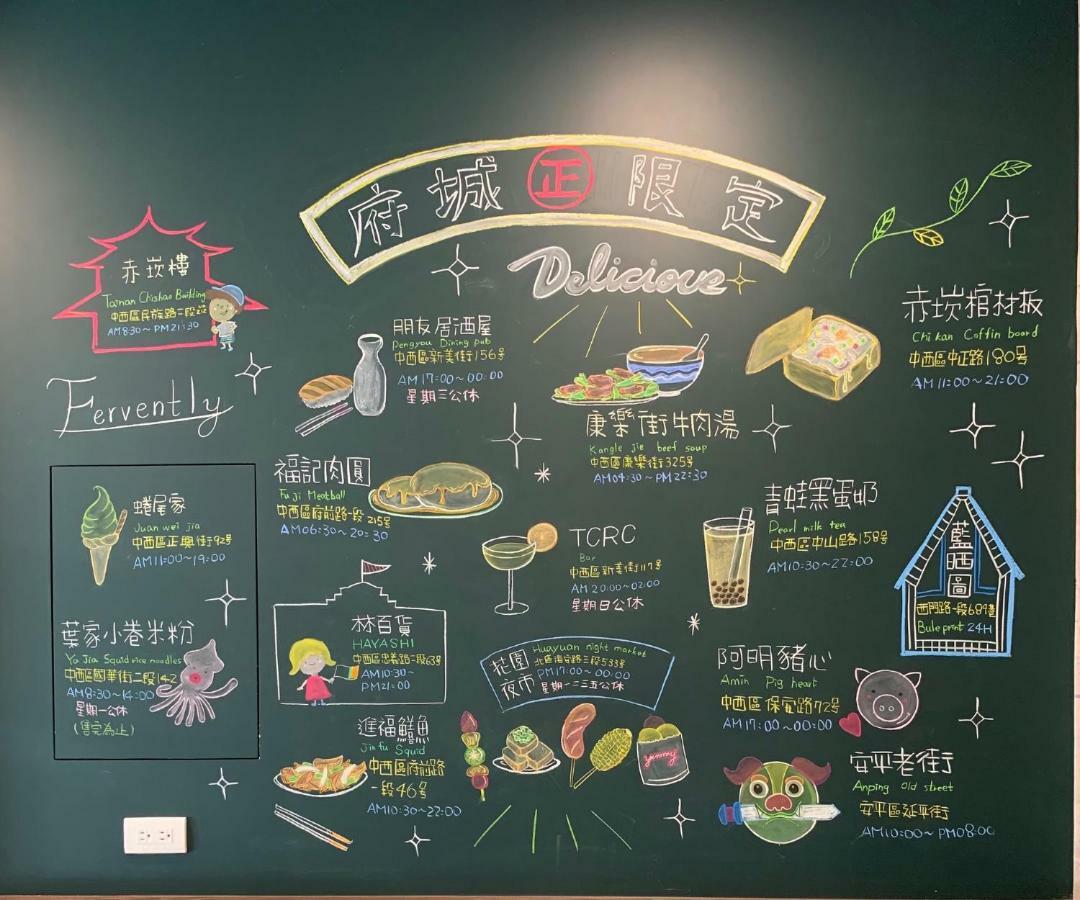 府城正限定
Deliciove
赤崁樓
Tainan Chishao Building
中西區民族路二段212
AM8:30～PM21:30
Fervently
朋友居酒屋
Pengyou Dining pub
中西區新美街156号
AM17:00～00:00
星期三公休
赤崁棺材板
Chi kan Coffin board
中西區中正路180号
AM11:00～21:00
康樂街牛肉湯
Kangle jie beef soup
中西區康樂街325号
AM04:30～PM22:30
福記肉圓
Fu Ji Meatball
中西區府前路一段215号
AM06:30～20:30
蜷尾家
Juan wei jia
中西區正興街92号
AM11:00～19:00
TCRC
Bar
中西區新美街117号
AM20:00～02:00
星期日公休
青蛙黑蛋奶
Pearl milk tea
中西區中山路158号
AM10:30～22:00
藍晒圖
西門路一段689巷
Bule print 24H
葉家小卷米粉
Ye Jia Squid rice noodles
中西區國華街二段142
AM8:30～14:00
星期一公休
(售完為止)
林百貨
HAYASHI
中西區忠義路二段63号
AM10:30～
PM21:00
花園夜市
Huayuan night market
北區海安路三段533号
PM17:00～00:00
星期一二三五公休
阿明豬心
Amin Pig heart
中西區保安路72号
AM17:00～00:00
進福鱔魚
Jin fu Squid
中西區府前路
一段46号
AM10:30～22:00
yummy
安平老街
Anping Old street
安平區延平街
AM10:00～PM08:00